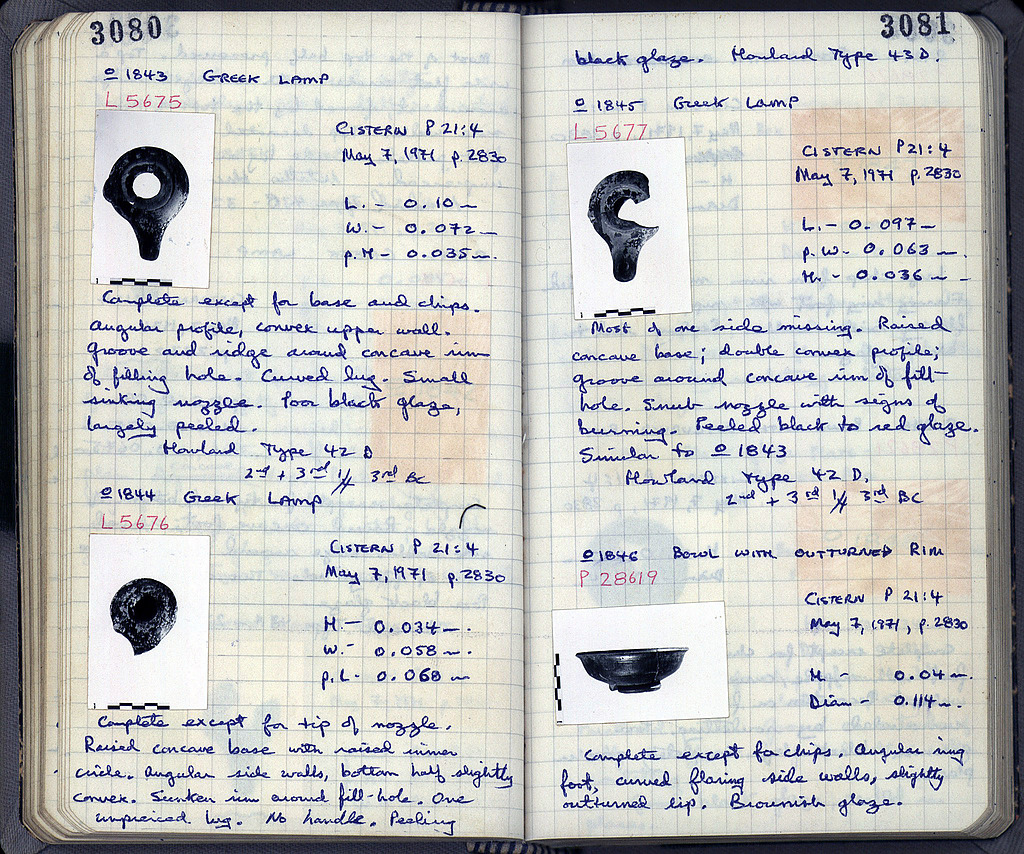 3080
o 1843 GREEK LAMP
L 5675
CISTERN P 21:4
May 7, 1971 p. 2830
L. - 0.10 m
W. - 0.072 m
p. H - 0.035 m.
Complete except for base and chips.
Angular profile, convex upper wall.
Groove and ridge around concave rim
of filling hole. Curved lug. Small
sinking nozzle. Poor black glaze,
largely peeled.
Howland Type 42 D
2nd + 3rd 1/4 3rd BC
o 1844 Greek LAMP
L 5676
CISTERN P 21:4
May 7, 1971 p. 2830
H. - 0.034 m.
W. - 0.058 m.
p. L - 0.068 m
Complete except for tip of nozzle.
Raised concave base with raised inner
circle. Angular side walls, bottom half slightly
convex. Sunken rim around fill-hole. One
unpierced lug. No handle. Peeling
3081
black glaze. Howland Type 43 D.
o 1845 Greek LAMP
L 5677
CISTERN P 21:4
May 7, 1971 p. 2830
L. - 0.097 m
p. W - 0.063 m
H. - 0.036 m
Most of one side missing. Raised
concave base; double convex profile;
groove around concave rim of fill-
hole. Snub nozzle with signs of
burning. Peeled black to red glaze.
Similar to o 1843
Howland Type 42 D.
2nd + 3rd 1/4 3rd BC
o 1846 BOWL WITH OUTTURNED RIM
P 28619
CISTERN P 21:4
May 7, 1971, p. 2830
H. - 0.04 m.
Diam - 0.114 m.
Complete except for chips. Angular ring
foot, curved flaring side walls, slightly
outturned lip. Brownish glaze.